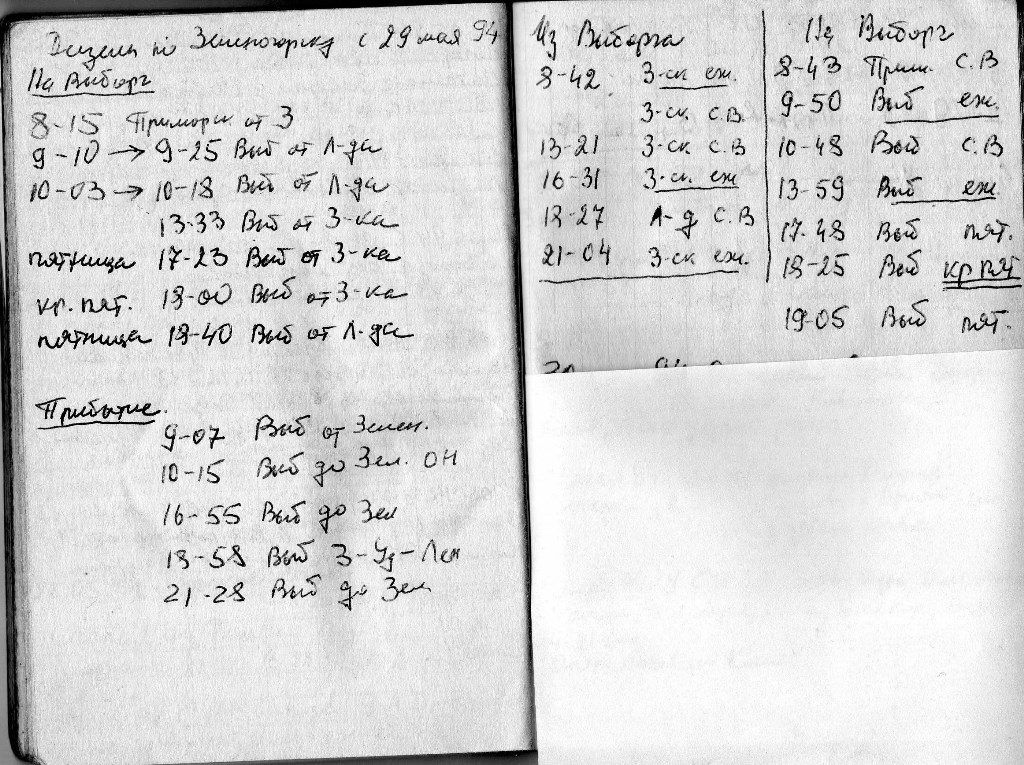 Дизеля по Зеленогорску с 29 мая 94
На Выборг
8-15 Приморск от З
9-10 → 9-25 Выб от Л-да
10-03 → 10-18 Выб от Л-да
13-33 Выб от З-ка
пятница 17-23 Выб от З-ка
кр. пят. 18-00 Выб от З-ка
пятница 18-40 Выб от Л-да
Прибытие.
9-07 Выб от Зелен.
10-15 Выб до Зел. ОН
16-55 Выб до Зел
18-58 Выб З-Уд-Лен
21-28 Выб до Зел
Из Выборга
8-42 З-ск еж.
З-ск С.В.
13-21 З-ск С.В
16-31 З-ск еж
18-27 Л-д С.В
21-04 З-ск еж.
На Выборг
8-43 Прим. С.В
9-50 Выб еж.
10-48 Выб С.В
13-59 Выб еж
17-48 Выб пят.
18-25 Выб кр пят
19-05 Выб пят.